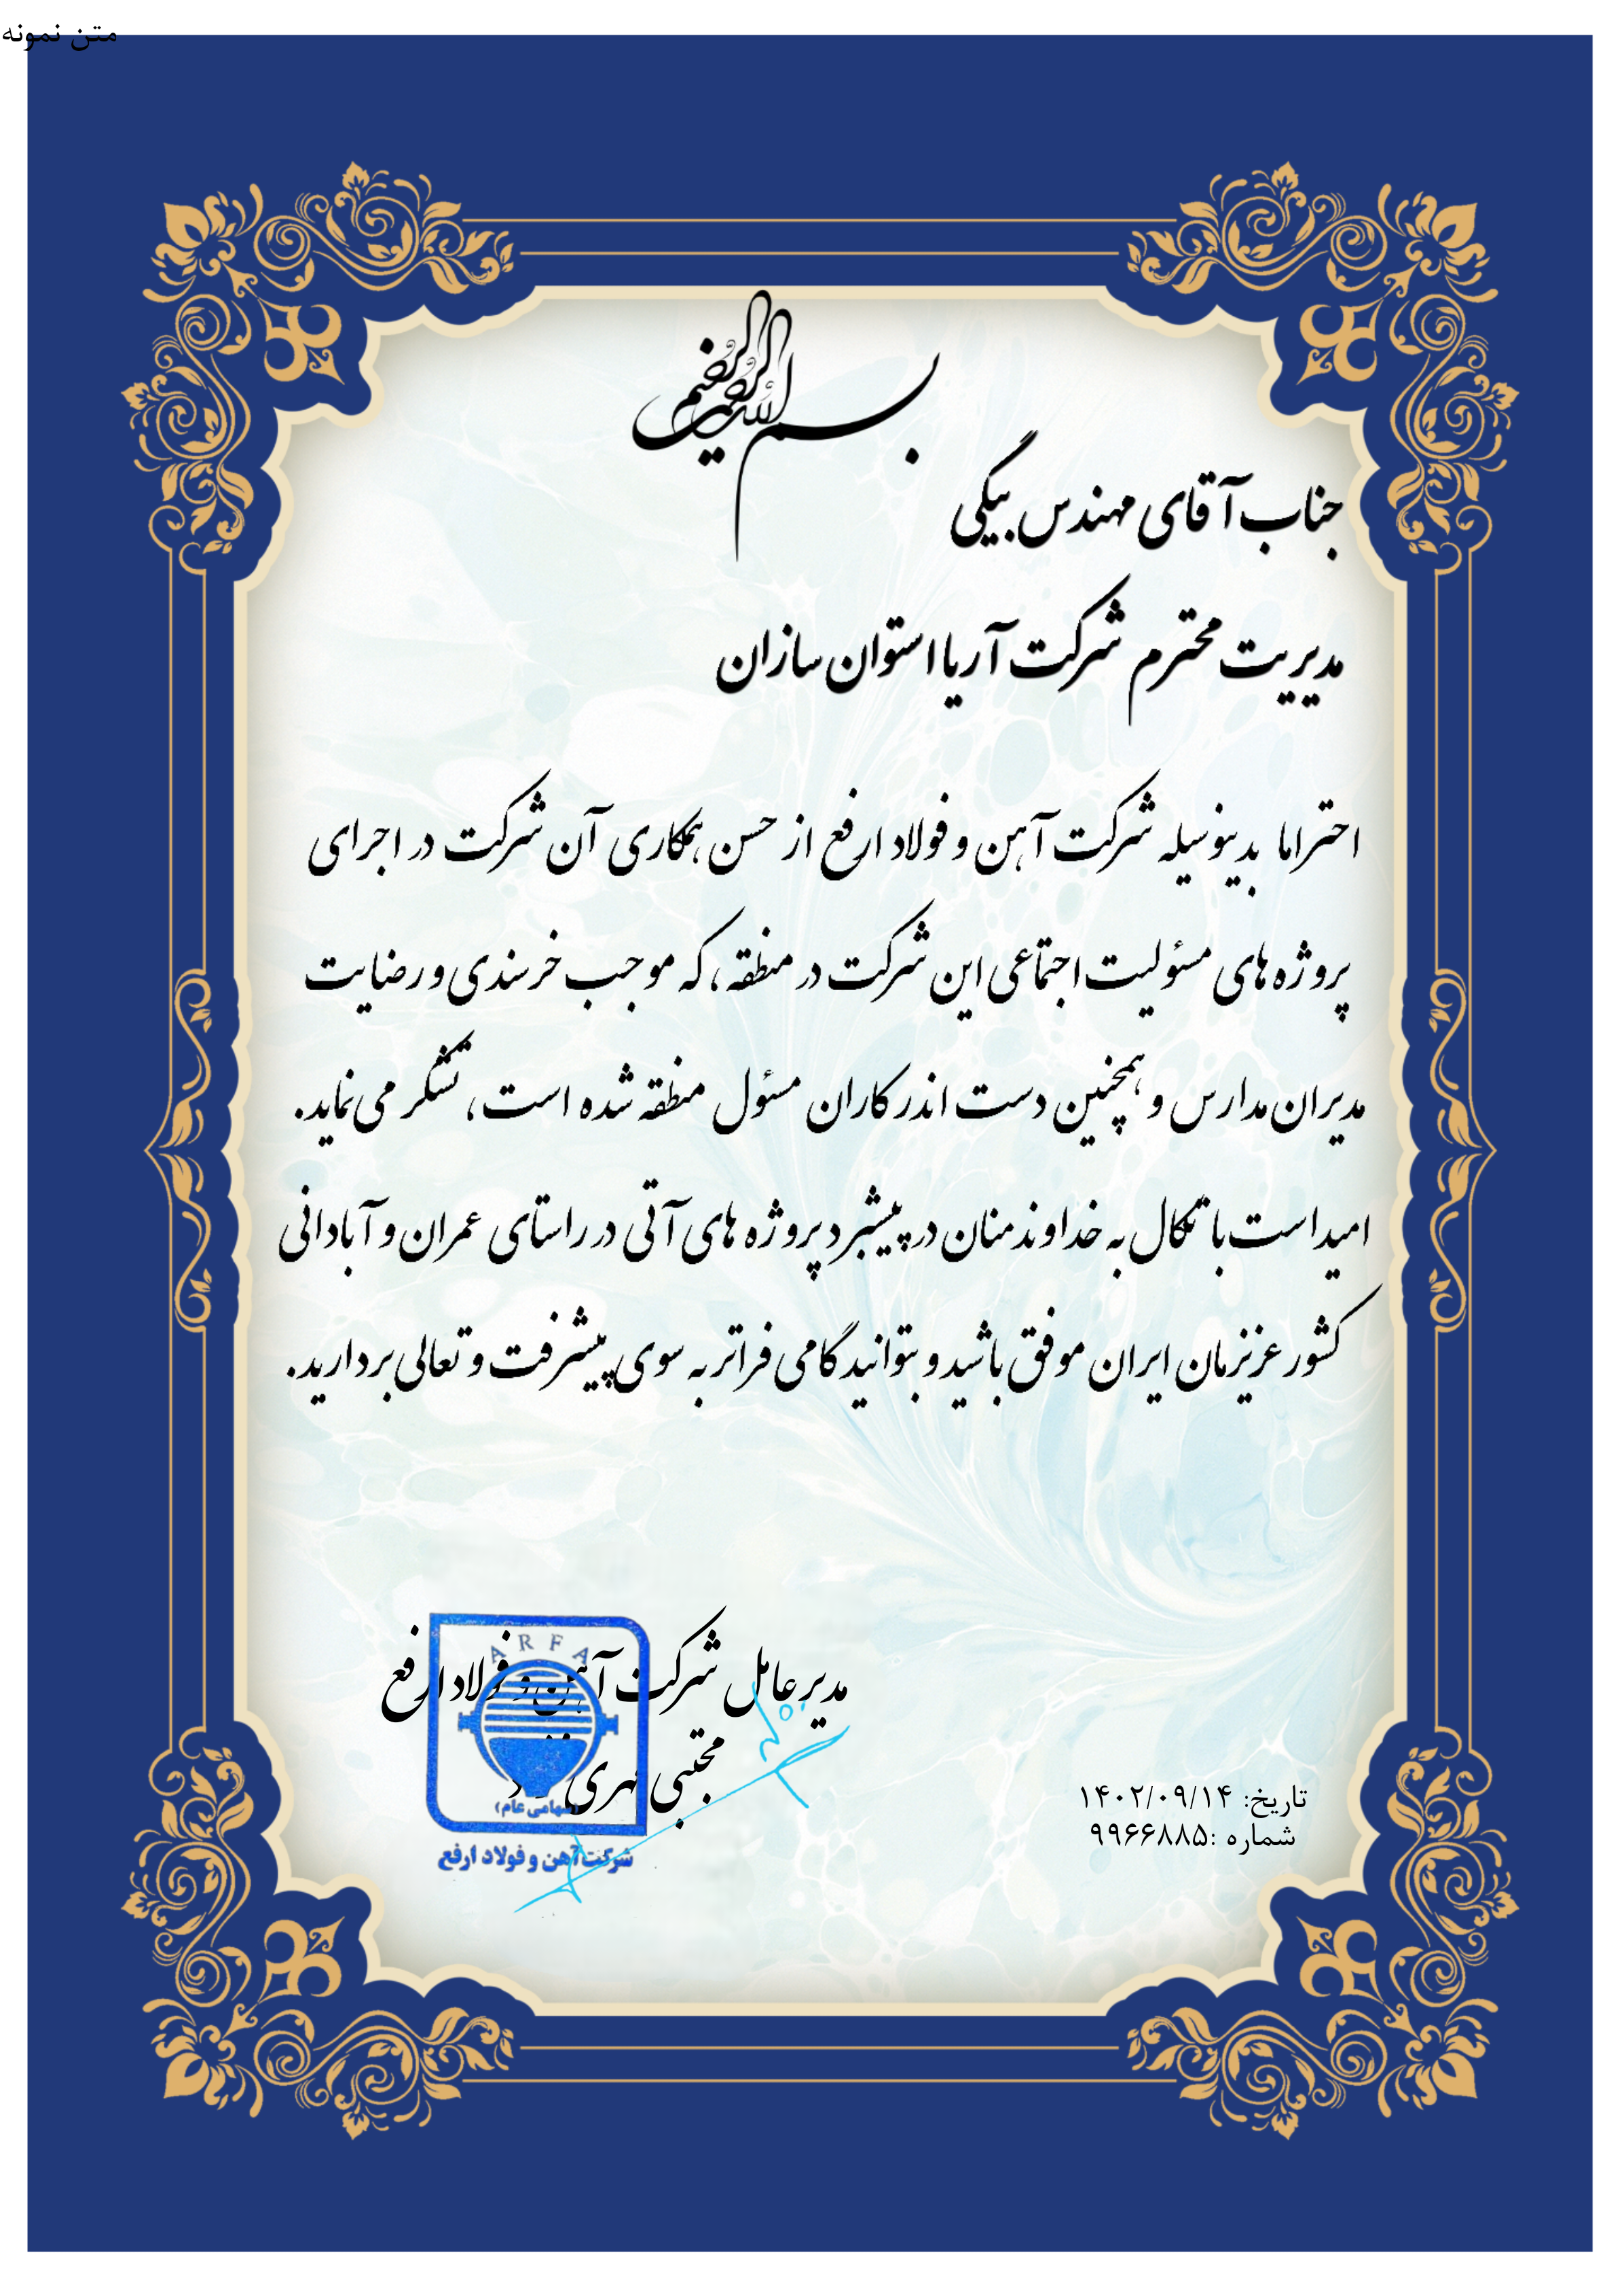 متن نمونه
بسم الله الرحمن الرحیم
جناب آقای مهندس بیگی
مدیریت محترم شرکت آریا استوان سازان
احتراما بدینوسیله شرکت آهن و فولاد ارفع از حسن همکاری آن شرکت در اجرای
پروژه های مسئولیت اجتماعی این شرکت در منطقه، که موجب خرسندی و رضایت
مدیران مدارس و همچنین دست اندرکاران مسئول منطقه شده است، تشکر می نماید.
امید است با تکال به خداوند منان در پیشبرد پروژه های آتی در راستای عمران و آبادانی
کشور عزیزمان ایران موفق باشید و بتوانید گامی فراتر به سوی پیشرفت و تعالی بردارید.
مدیر عامل شرکت آهن و فولاد ارفع
مجتبی
ARFA
(سهامی عام)
شرکت آهن و فولاد ارفع
تاریخ: ۱۴۰۲/۰۹/۱۴
شماره :۹۹۶۶۸۸۵